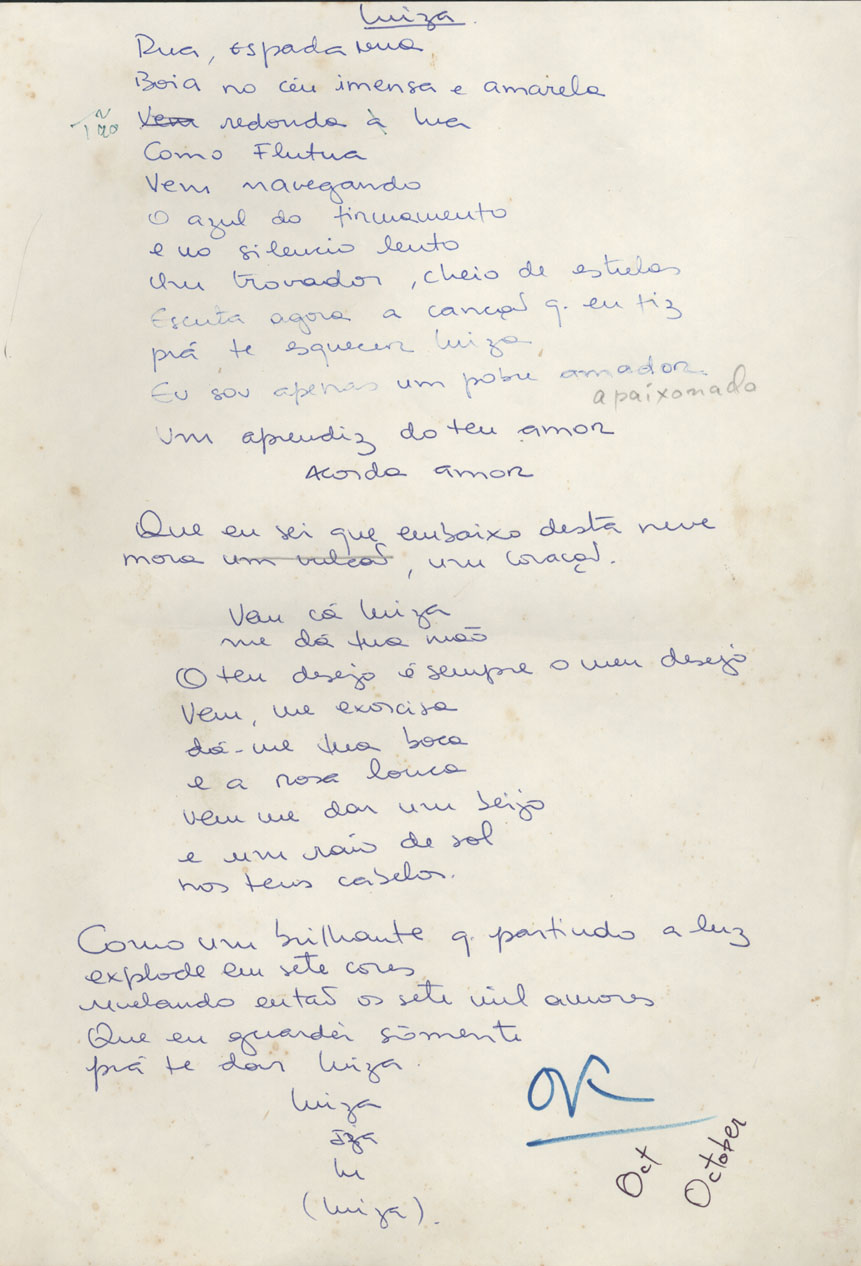 Luiza
Rua, espada nua
Boia no céu imensa e amarela
Tão Vem redonda à lua
Como Flutua
Vem navegando
O azul do firmamento
e no silencio lento
Um trovador, cheio de estrelas
Escuta agora a canção q. eu fiz
prá te esquecer Luiza
Eu sou apenas um pobre amador.
apaixonado
Um aprendiz do teu amor
Acorda amor
Que eu sei que embaixo desta neve
mora um vulcão, um coração.
Vem cá Luiza
me dá tua mão
O teu desejo é sempre o meu desejo
Vem, me exorcisa
dá-me tua boca
e a rosa louca
vem me dar um beijo
e um raio de sol
nos teus cabelos.
Como um brilhante q. partindo a luz
explode em sete cores
revelando então os sete mil amores
Que eu guardei sòmente
prá te dar Luiza
Luiza
Iza
Lu
(Luiza).
OK
Oct
October